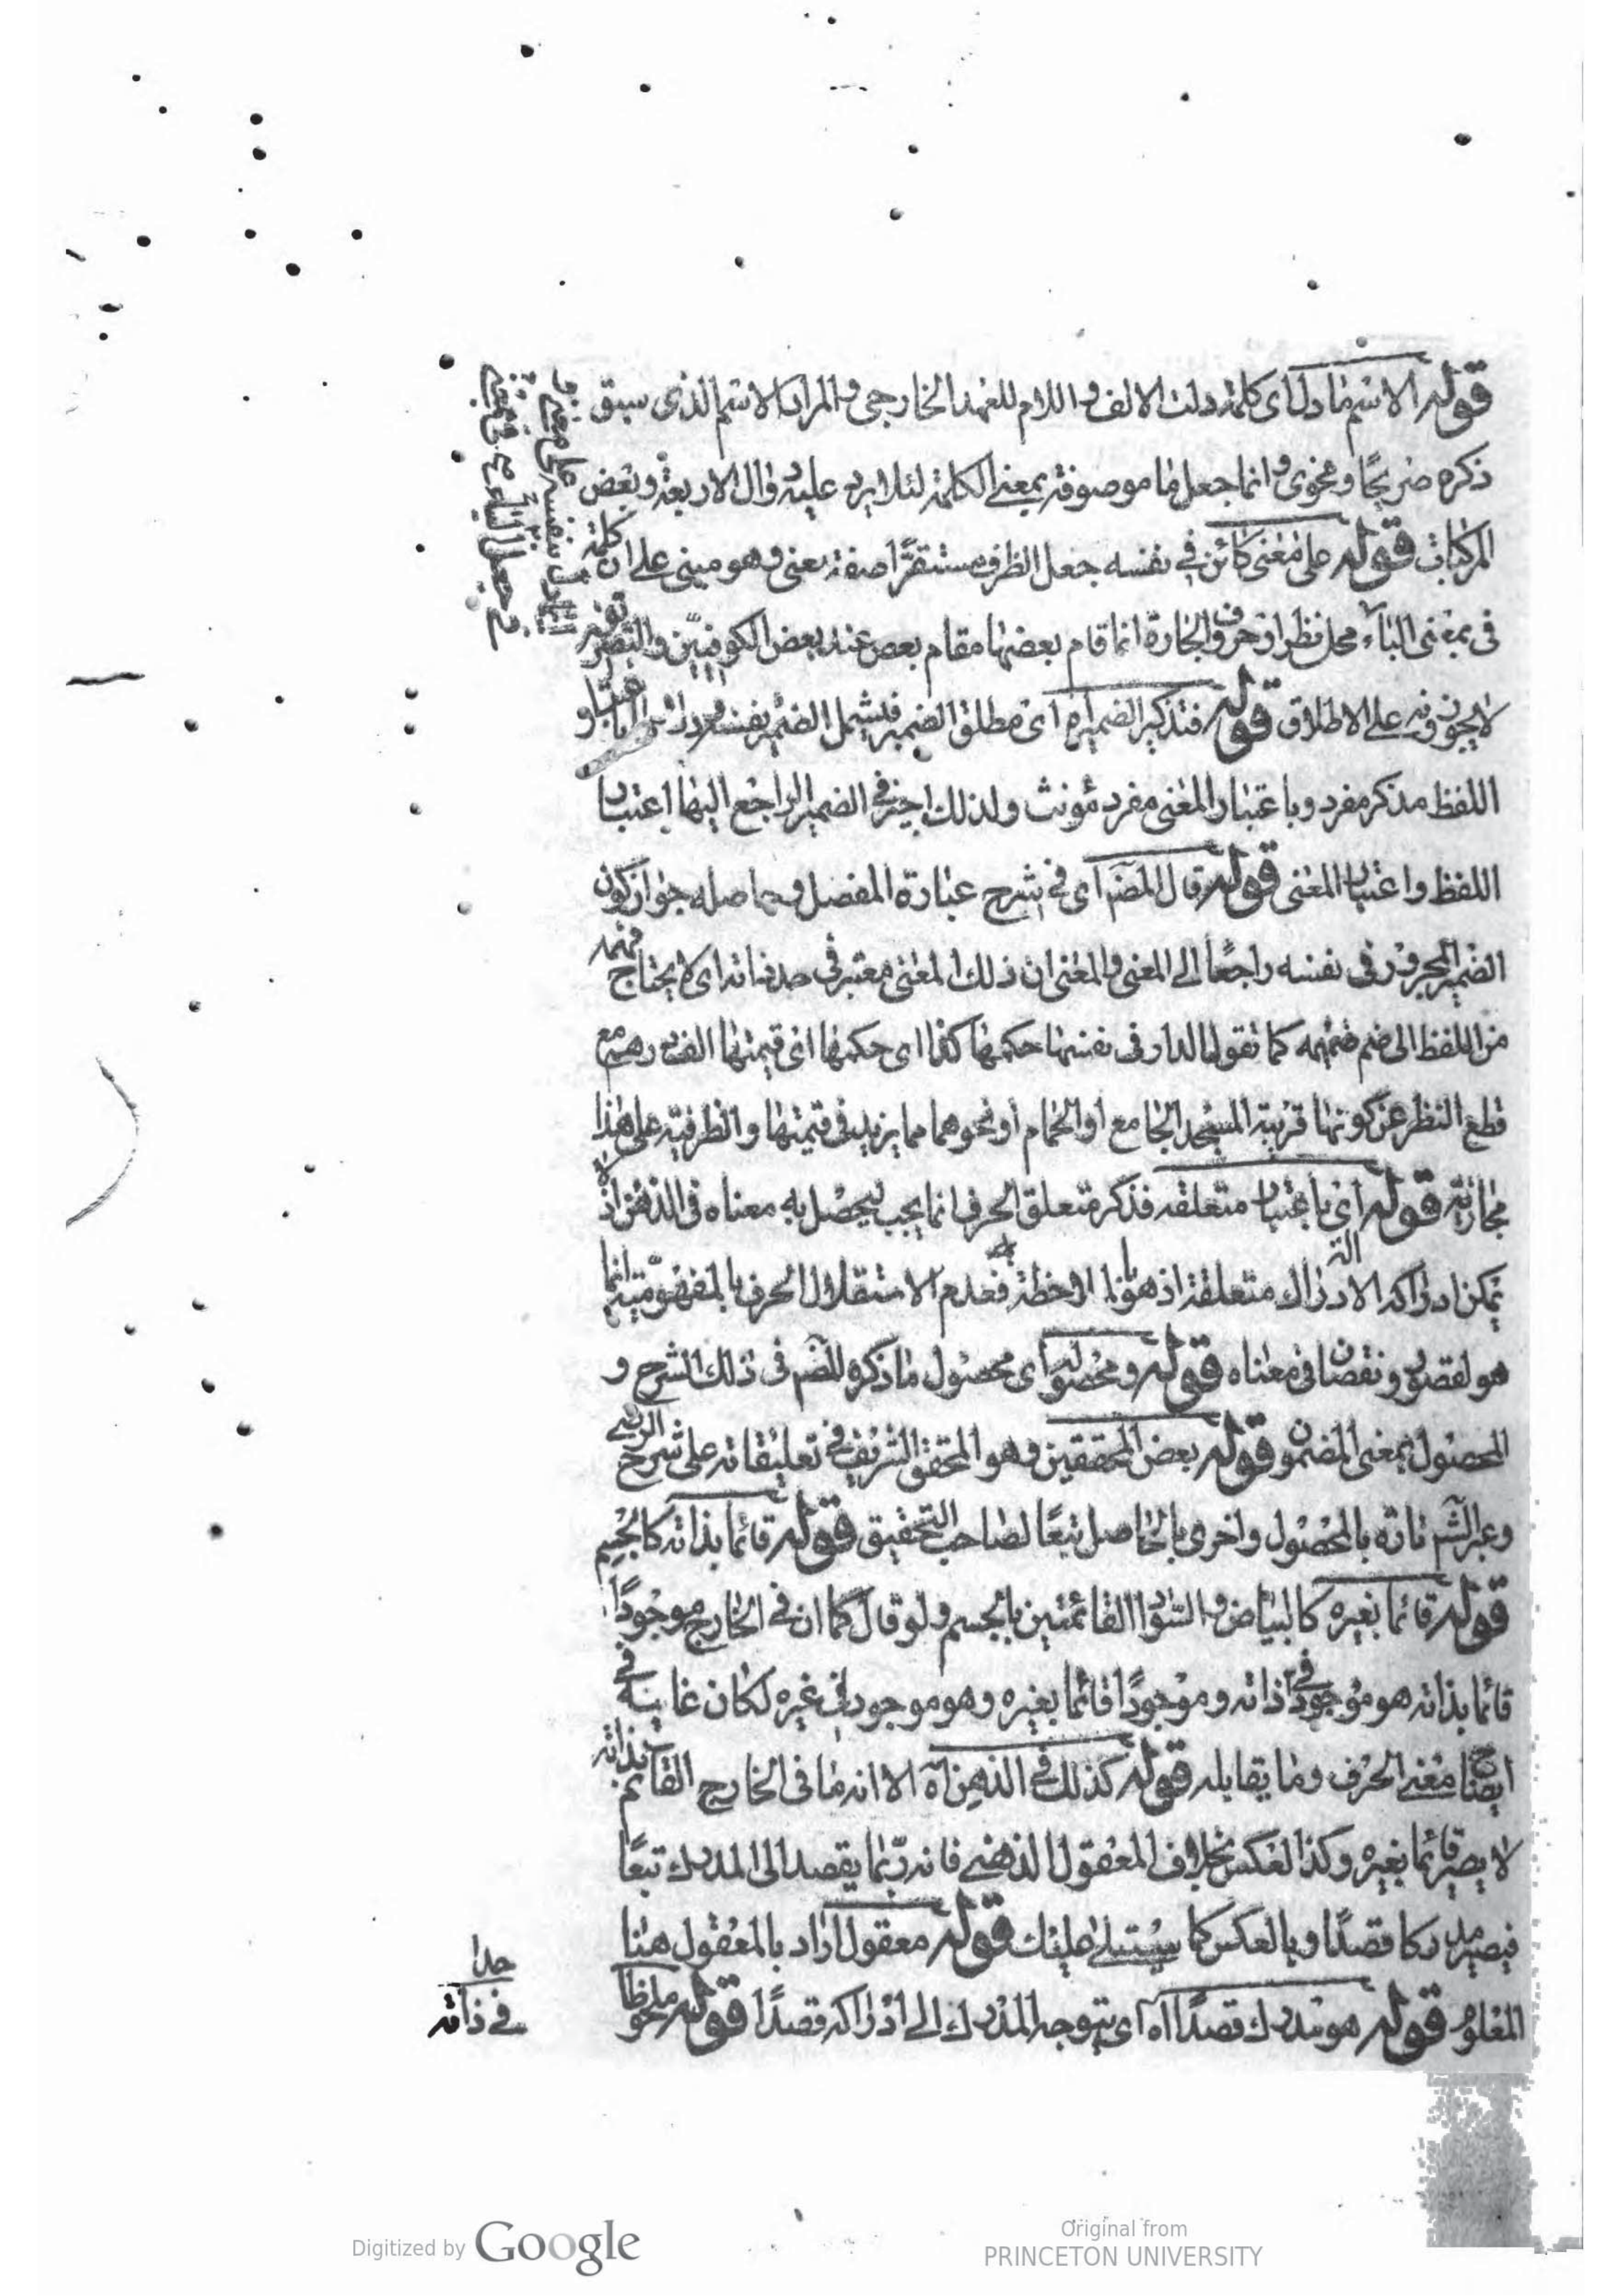 قوله الاسم ما دل اى كلمة دلت الالف واللام للعهد الخارجى والمراد الاسم الذى سبق
ذكره صريحًا وفحوى وانما جعل ما موصوفة بمعنى الكلمة لئلا يرد عليه دوال الاربعة وبعض
المركبات قوله على معنى كائن فى نفسه جعل الظرف مستقرًا صفة معنى وهو مبنى على ان كلمة
فى بمعنى الباء محل نظر اذ حروف الجارة انما قام بعضها مقام بعض عند بعض الكوفيين والبصريون
لا يجوزونه على الاطلاق قوله فتذكير الضمير اه اى مطلق الضمير فيشمل الضمير بنفسه
اللفظ مذكر مفرد وباعتبار المعنى مفرد مؤنث ولذلك اجيز فى الضمير الراجع اليها اعتبار
اللفظ واعتبار المعنى قوله قال المص اى فى شرح عبارة المفصل وحاصله جواز كون
الضمير المجرور فى نفسه راجعًا الى المعنى والمعنى ان ذلك المعنى معتبر فى حد ذاته اى لا يحتاج فهمه
من اللفظ الى ضم ضميمه كما تقول الدار فى نفسها حكمها كذا اى حكمها اى قيمتها الف درهم مع
قطع النظر عن كونها قريبة المسجد الجامع او الحمام او نحوهما مما يزيد فى قيمتها والظرفية على هذا
مجازية قوله اى باعتبار متعلقه فذكر متعلق الحرف انما يجب ليحصل به معناه فى الذهن اذ لا
يمكن ادراكه الا بادراك متعلقة اذ هو الة لملاحظة فعدم الاستقلال الحرف بالمفهومية انما
هو لقصور ونقصان فى معناه قوله ومحصوله اى محصول ما ذكره المص فى ذلك الشرح و
المحصول بمعنى المضمون قوله بعض المحققين وهو المحقق الشريف فى تعليقاته على شرح الرضى
وعبر الش تارة بالمحصول واخرى بالحاصل تبعًا لصاحب التحقيق قوله قائما بذاته كالجسم
قوله قائما بغيره كالبياض والسواد القائمتين بالجسم ولو قال كما ان فى الخارج موجودًا
قائما بذاته هو موجود فى ذاته وموجودًا قائما بغيره وهو موجود فى غيره لكان غاية فى
ايضاح معنى الحرف وما يقابله قوله كذلك فى الذهن اه الا انه ما فى الخارج القائم بذاته
لا يصير قائما بغيره وكذا العكس بخلاف المعقول الذهنى فانه ربما يقصد الى المدرك تبعًا
فيصير مدركا قصدًا وبالعكس كما سيتلى عليك قوله معقول اراد بالمعقول هنا
المعلوم قوله هو مدرك قصدًا اه اى يتوجه المدرك الى ادراكه قصدًا قوله ملحوظا
فى ذاته